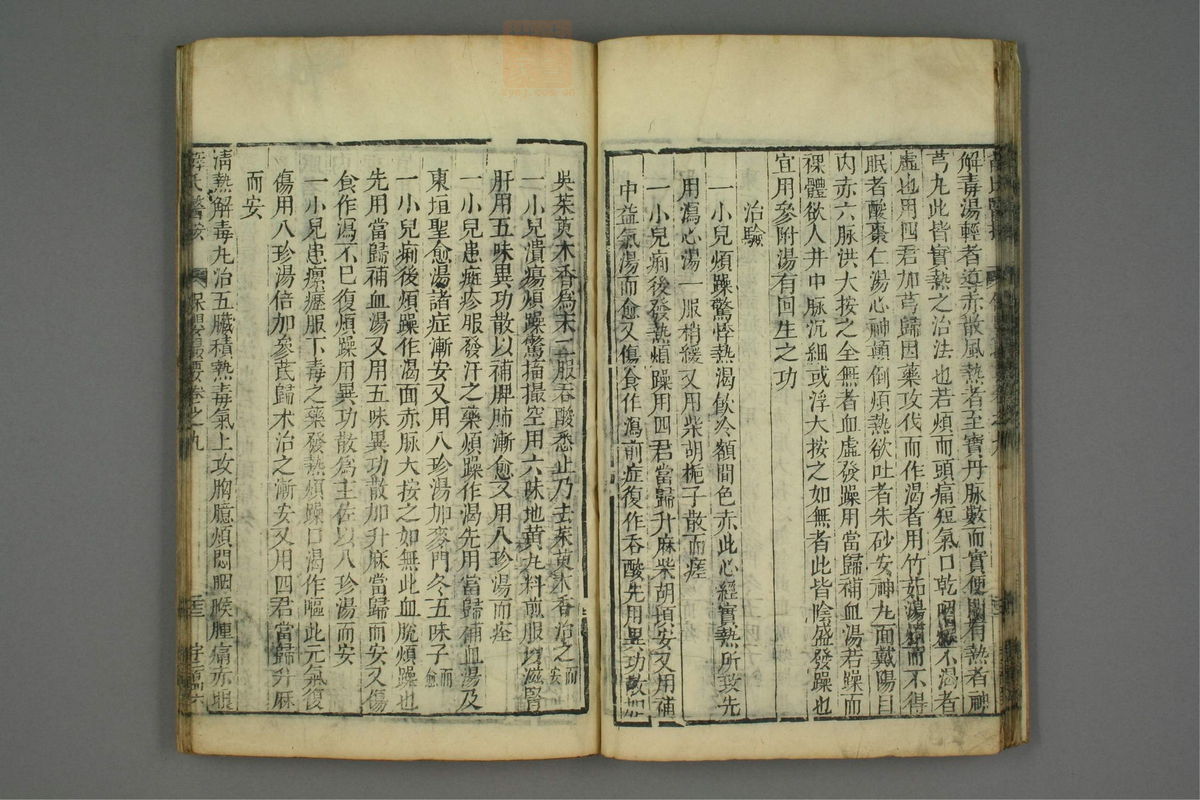 解毒湯輕者導赤散風熱者至寶丹脉數而實便閉有熱者神
芎丸此皆實熱之治法也若煩而頭痛短氣口乾咽燥不渴者
虛也用四君加芎歸因藥攻伐而作渴者用竹茹湯煩而不得
眠者酸棗仁湯心神顛倒煩熱欲吐者朱砂安神丸面戴陽目
内赤六脉洪大按之全無者血虛發躁用當歸補血湯若躁而
裸體欲入井中脉沉細或浮大按之如無者此皆陰盛發躁也
宜用參附湯有回生之功
治驗
一小兒煩躁驚悸熱渴飲冷額間色赤此心經實熱所致先
用瀉心湯一服稍緩又用柴胡梔子散而痊
一小兒痢後發熱煩躁用四君當歸升麻柴胡頓安又用補
中益氣湯而愈又傷食作瀉前症復作吞酸先用異功散加
吳茱萸木香爲末一服吞酸悉止乃去茱萸木香治之而安
一小兒潰瘍煩躁驚搐撮空用六味地黄丸料煎服以滋腎
肝用五味異功散以補脾肺漸愈又用八珍湯而痊
一小兒患癍疹服發汗之藥煩躁作渴先用當歸補血湯及
東垣聖愈湯諸症漸安又用八珍湯加麥門冬五味子而愈
一小兒痢後煩躁作渴面赤脉大按之如無此血脫煩躁也
先用當歸補血湯又用五味異功散加升麻當歸而安久傷
食作瀉不已復煩躁用異功散爲主佐以八珍湯而安
一小兒患瘰癧服下毒之藥發熱煩躁口渴作嘔此元氣復
傷用八珍湯倍加參芪歸术治之漸安又用四君當歸升麻
而安
清熱解毒丸治五臟積熱毒氣上攻胸臆煩悶咽喉腫痛赤眼
薛氏醫按 保嬰撮要卷之九